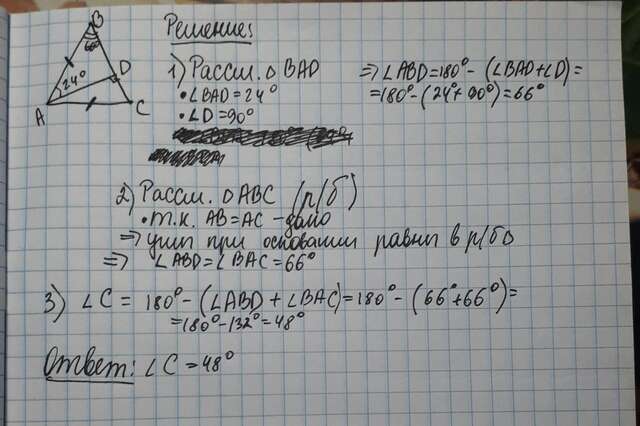 B
66°
24°
D
A
C
Решение:
1) Рассм. △ BAD
• ∠BAD = 24°
• ∠D = 90°
=> ∠ABD = 180° - (∠BAD + ∠D) =
= 180° - (24° + 90°) = 66°
2) Рассм. △ ABC (р/б)
• т.к. AB = AC - дано
=> углы при основании равны в р/б △
=> ∠ABD = ∠BAC = 66°
3) ∠C = 180° - (∠ABD + ∠BAC) = 180° - (66° + 66°) =
= 180° - 132° = 48°
Ответ: ∠C = 48°